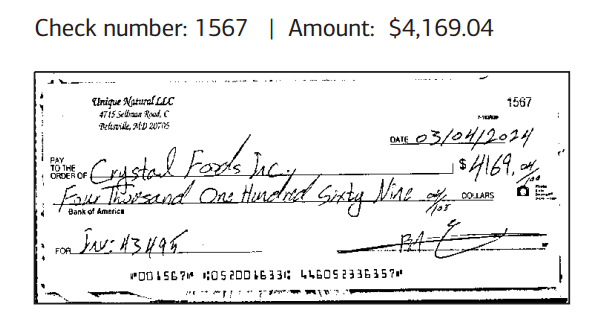 Check number: 1567 | Amount: $4,169.04
Unique Natural LLC
1567
4715 Sellman Road, C
Beltsville, MD 20705
DATE 03/04/2024
PAY TO THE ORDER OF Crystal Foods Inc. $4169.04/100
Four Thousand One Hundred Sixty Nine 04/100 DOLLARS
Bank of America
FOR Inv: #3495